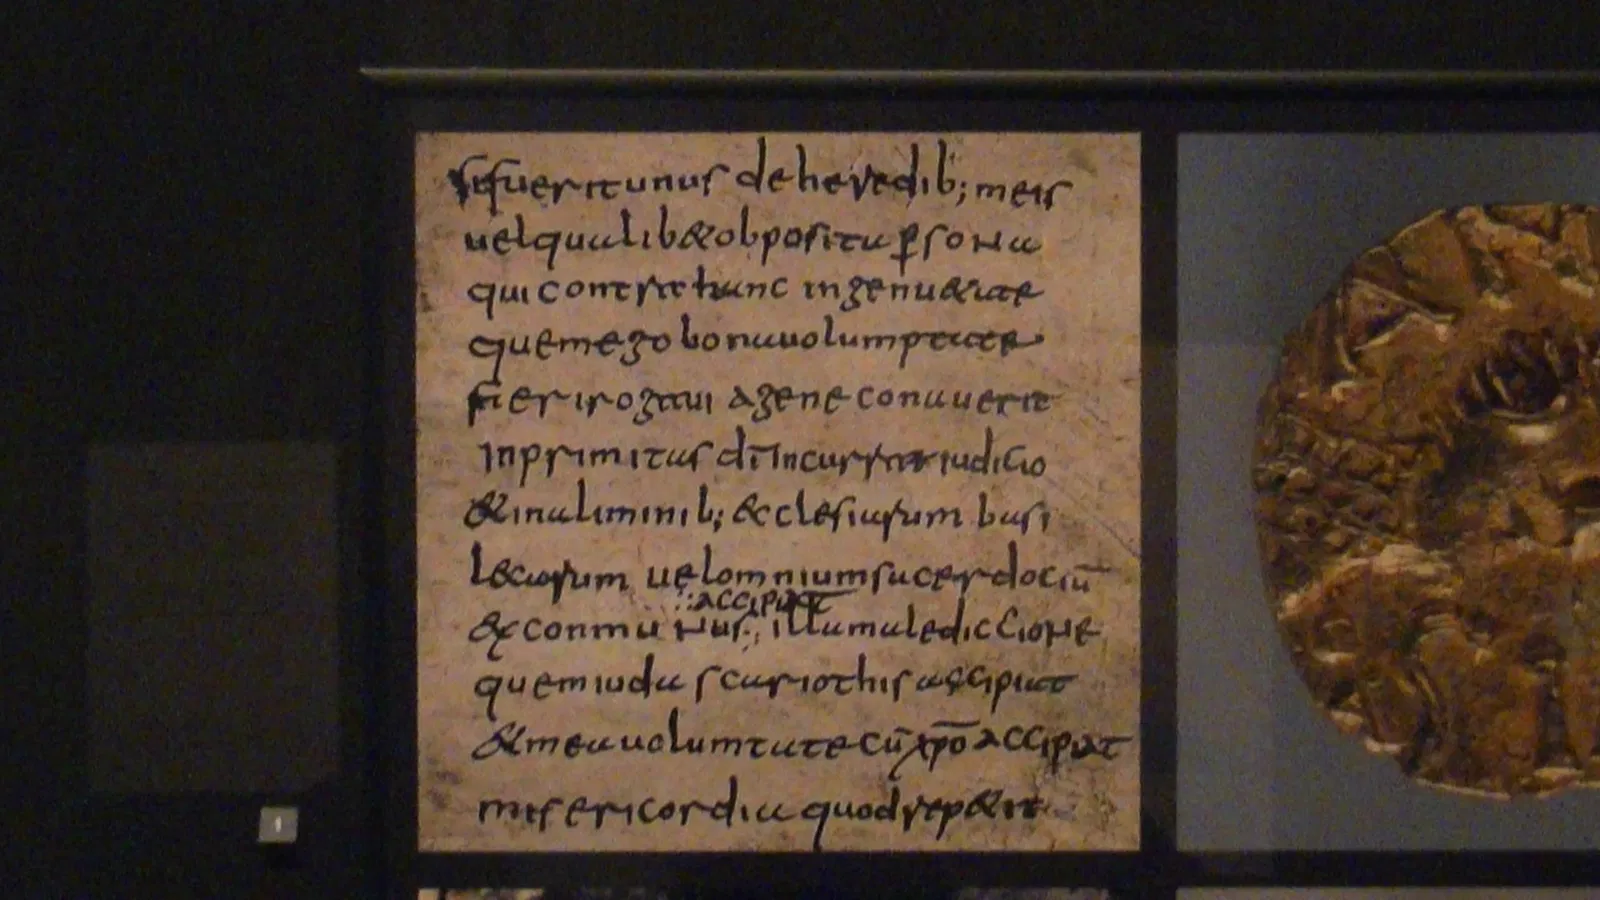 si fuerit unus de heredib; meis
uel qualib& obposita p̱sona
qui contra hunc ingenu&ate
quem ego bona uolumptate
fieri rogaui agene conauerit
inprimitus dī incurrat iudicio
& in aliminib; &cclesiarum basi
l&carum uel omnium sacerdociū
accipiat
exconmunus; illa malediccione
quem iuda scariothis accipiat
& mea uolumtate cū xp̄o accipiat
misericordia quod rep&it
1